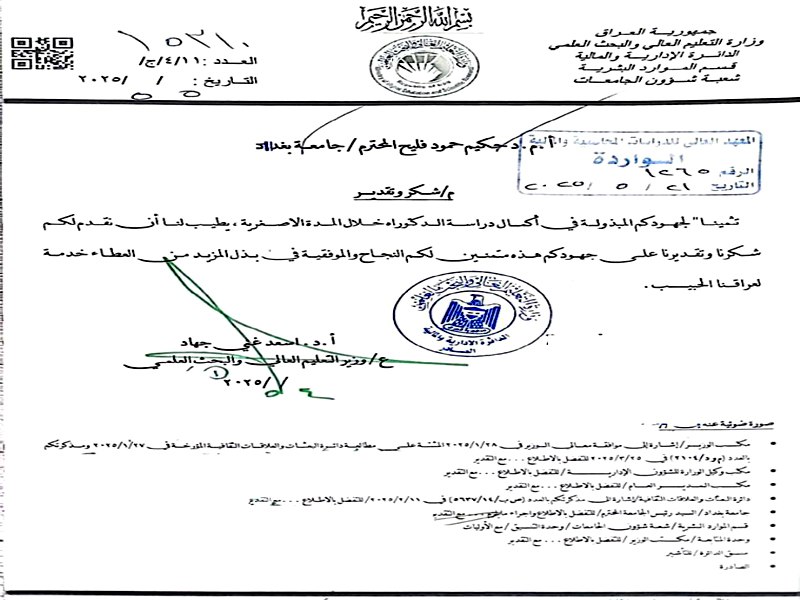 بسم الله الرحمن الرحيم
جمهورية العراق
وزارة التعليم العالي والبحث العلمي
الدائرة الإدارية والمالية
قسم الموارد البشرية
شعبة شؤون الجامعات
العدد: ج/٤/١١/
التاريخ: / /٢٠٢٥
المعهد العالي للدراسات المحاسبية والمالية
الواردة
الرقم ١٢٦٥
التاريخ ٢١ / ٥ / ٢٠٢٥
أ.م.د حكيم حمود فليح المحترم/جامعة بغداد
م/شكر وتقدير
تثمينا" لجهودكم المبذولة في أكمال دراسة الدكتوراه خلال المدة الاصغرية ، يطيب لنا أن نقدم لكم
شكرنا وتقديرنا على جهودكم هذه متمنين لكم النجاح والموفقية في بذل المزيد من العطاء خدمة
لعراقنا الحبيب .
أ.د. اسعد غني جهاد
ع/وزير التعليم العالي والبحث العلمي
/ /٢٠٢٥
الدائرة الادارية والمالية
صورة ضوئية عنه الى
• مكتب الوزير/إشارة إلى موافقة معالي الوزير في ٢٠٢٥/١/٢٨ المثبتة على مطالبة دائرة البعثات والعلاقات الثقافية المؤرخة في ٢٠٢٥/١/٢٧ ومذكرتكم
بالعدد (م و د/٢١٠٤) في ٢٠٢٥/٣/٢٥ للتفضل بالاطلاع...مع التقدير
• مكتب وكيل الوزارة للشؤون الإدارية/للتفضل بالاطلاع...مع التقدير
• مكتب المدير العام/للتفضل بالاطلاع...مع التقدير
• دائرة البعثات والعلاقات الثقافية/إشارة الى مذكرتكم بالعدد في ٢٠٢٥/٢/١١/للتفضل بالاطلاع...مع التقدير
• جامعة بغداد/السيد رئيس الجامعة المحترم/للتفضل بالاطلاع واجراء مايلزم مع التقدير
• قسم الموارد البشرية/شعبة شؤون الجامعات/وحدة التنسيق/مع الأوليات
• وحدة المتابعة/مكتب الوزير/للتفضل بالاطلاع...مع التقدير
• منسق الدائرة/للتأشير
• الصادرة